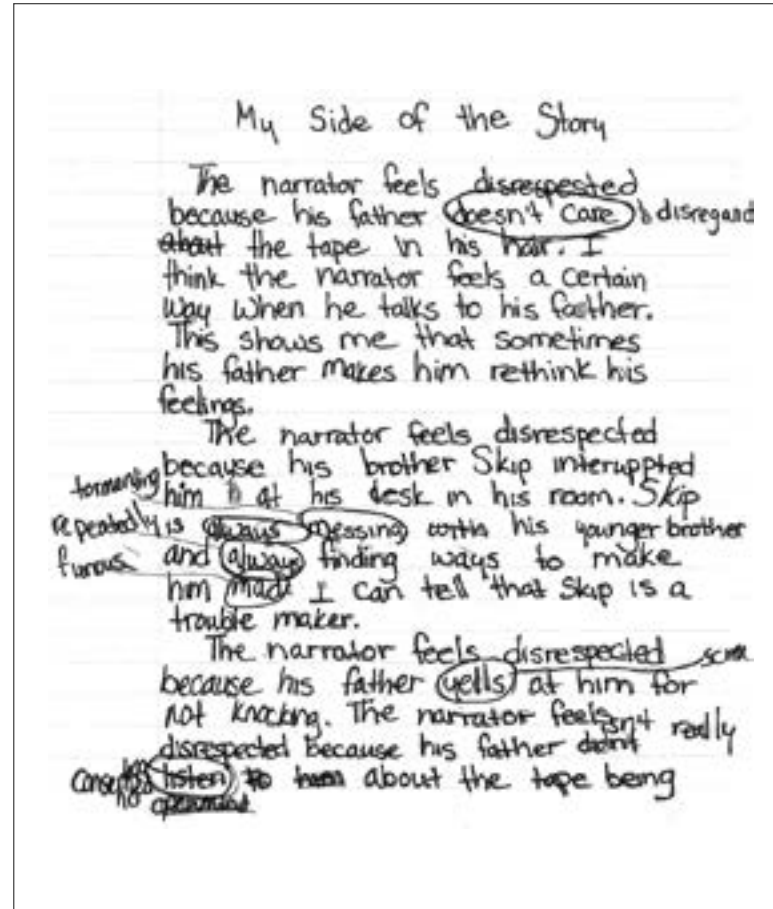 My Side of the Story
The narrator feels disrespested
because his father doesn't care disregard
about the tape in his hair. I
think the narrator feels a certain
way when he talks to his faather.
This shows me that sometimes
his father makes him rethink his
feelings.
The narrator feels disrespected
because his brother Skip interuppted
tormenting him at his desk in his room. Skip
repeatedly is always messing with his younger brother
furious and always finding ways to make
him mad. I can tell that Skip is a
trouble maker.
The narrator feels disrespected
because his father yells at him for
not knocking. The narrator feels
isn't really
disrespected because his father didn't
listen to him about the tape being